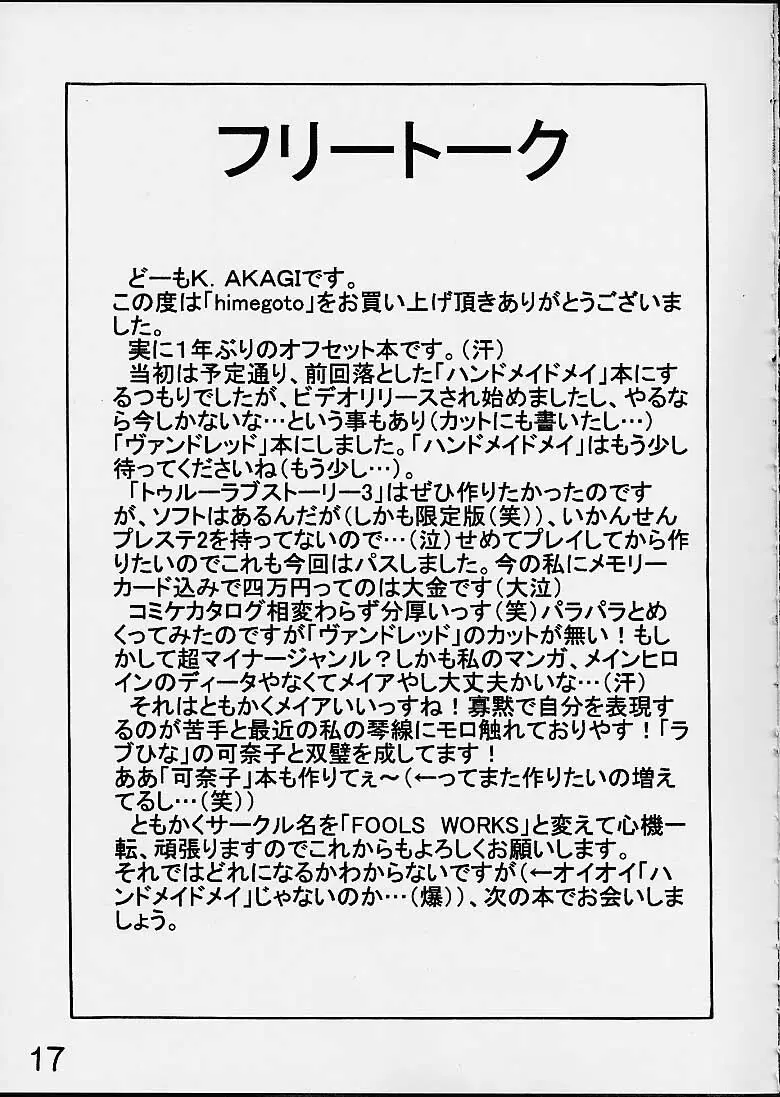 フリートーク
どーもK. AKAGIです。
この度は「himegoto」をお買い上げ頂きありがとうございま
した。
実に1年ぶりのオフセット本です。(汗)
当初は予定通り、前回落とした「ハンドメイドメイ」本にす
るつもりでしたが、ビデオリリースされ始めましたし、やるな
ら今しかないな…という事もあり(カットにも書いたし…)
「ヴァンドレッド」本にしました。「ハンドメイドメイ」はもう少し
待ってくださいね(もう少し…)。
「トゥルーラブストーリー3」はぜひ作りたかったのです
が、ソフトはあるんだが(しかも限定版(笑))、いかんせん
プレステ2を持ってないので…(泣)せめてプレイしてから作
りたいのでこれも今回はパスしました。今の私にメモリー
カード込みで四万円ってのは大金です(大泣)
コミケカタログ相変わらず分厚いっす(笑)パラパラとめ
くってみたのですが「ヴァンドレッド」のカットが無い！もし
かして超マイナージャンル？しかも私のマンガ、メインヒロ
インのディータやなくてメイアやし大丈夫かいな…(汗)
それはともかくメイアいいっすね！寡黙で自分を表現す
るのが苦手と最近の私の琴線にモロ触れておりやす！「ラ
ブひな」の可奈子と双璧を成してます！
ああ「可奈子」本も作りてぇ～(←ってまた作りたいの増え
てるし…(笑))
ともかくサークル名を「FOOLS WORKS」と変えて心機一
転、頑張りますのでこれからもよろしくお願いします。
それではどれになるかわからないですが(←オイオイ「ハ
ンドメイドメイ」じゃないのか…(爆))、次の本でお会いしま
しょう。
17